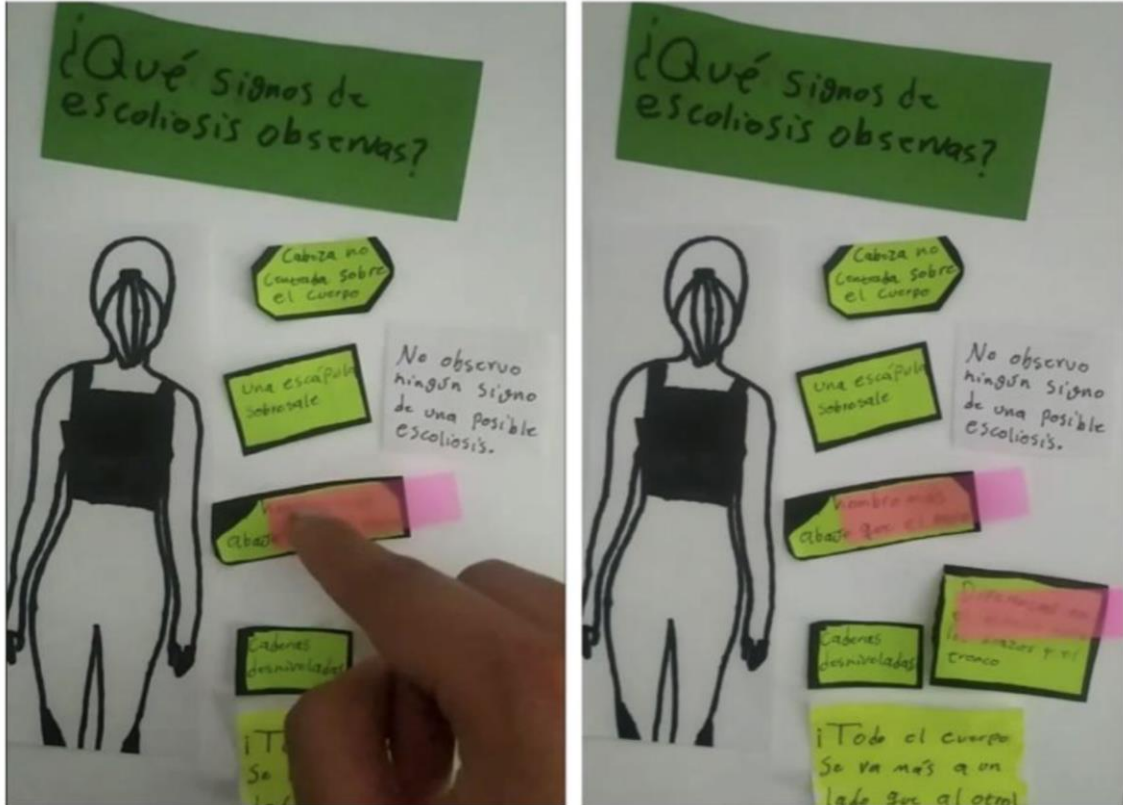 ¿Qué signos de
escoliosis observas?
Cabeza no
Centrada sobre
el cuerpo
una escápula
sobresale
No observo
ningún signo
de una posible
escoliosis.
abajo
Caderas
desniveladas
Se
¿Qué signos de
escoliosis observas?
Cabeza no
Centrada sobre
el cuerpo
una escápula
sobresale
No observo
ningún signo
de una posible
escoliosis.
hombro más
abajo que el
Caderas
desniveladas
brazos y el
tronco
¡Todo el cuerpo
Se va más a un
lado que al otro!